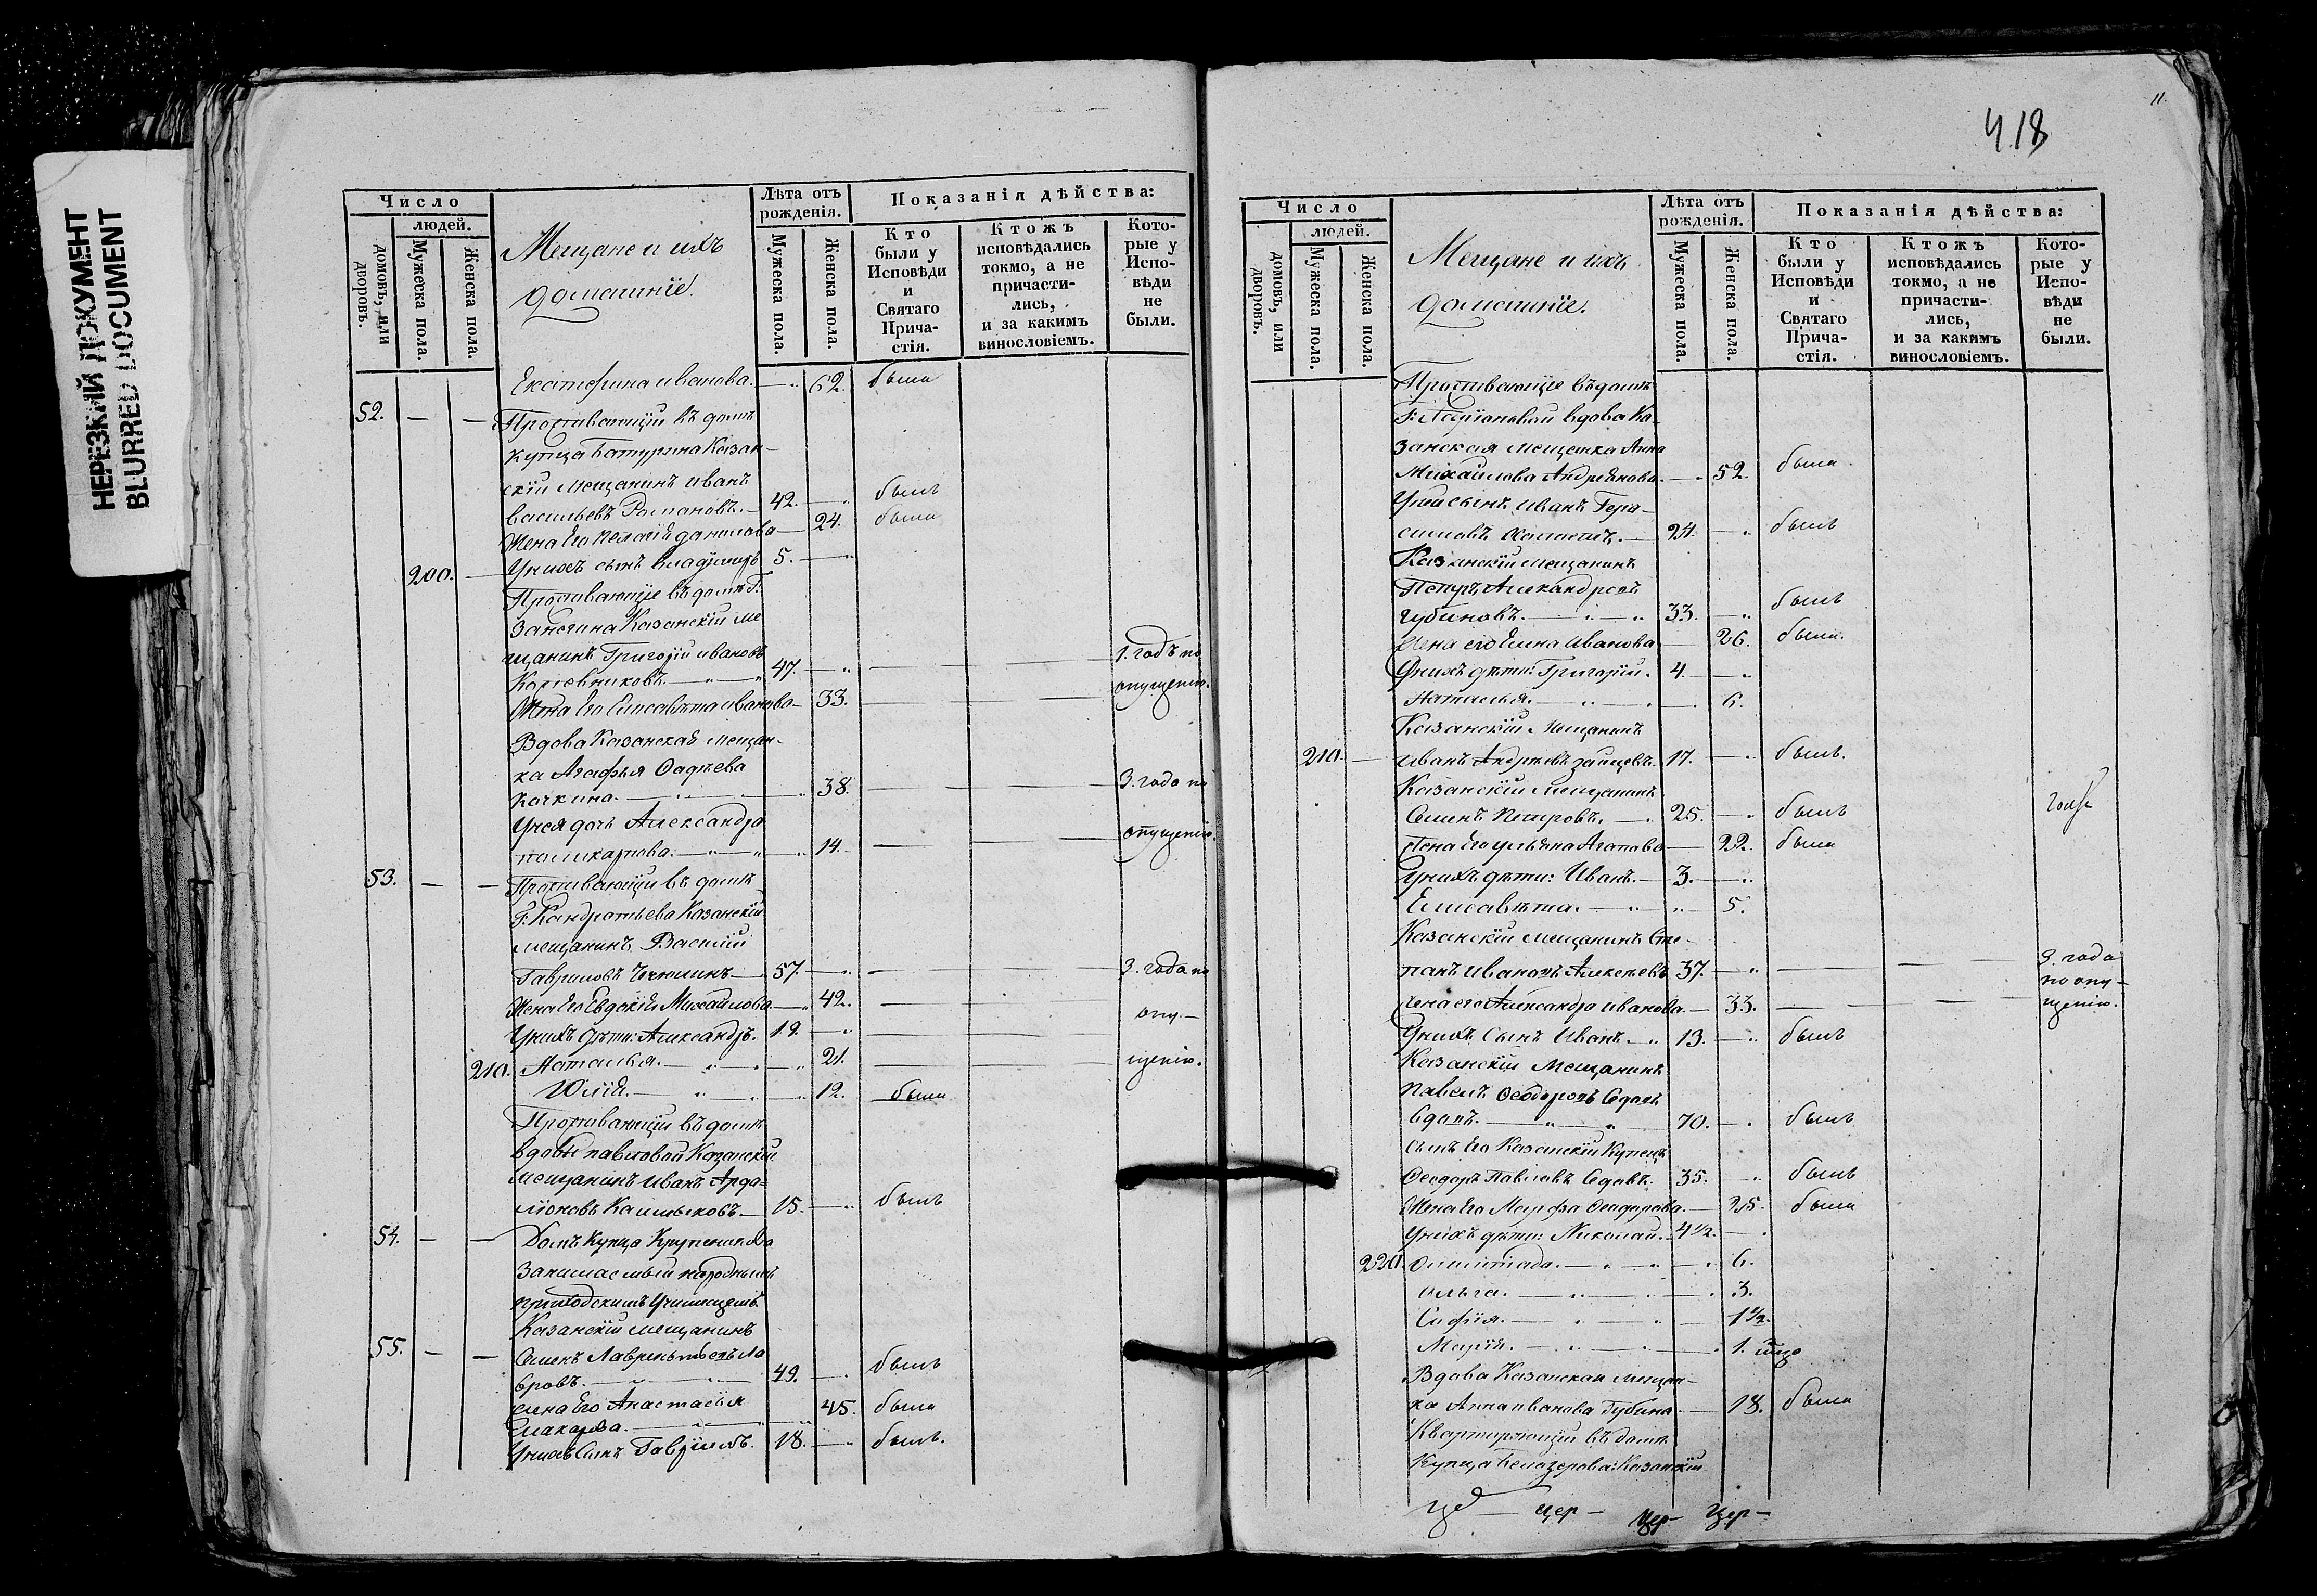 НЕРЕЗКИЙ ДОКУМЕНТ
BLURRED DOCUMENT
Число
людей.
домовъ, или дворовъ.
Мужеска пола.
Женска пола.
Мещане и ихъ
домашніе.
Лѣта отъ рожденія.
Мужеска пола.
Женска пола.
Показанія дѣйства:
Кто были у Исповѣди и Святаго Прича-стія.
Ктожъ исповѣдались токмо, а не причасти-лись, и за какимъ винословіемъ.
Кото-рые у Испо-вѣди не были.
Екатерина Иванова. — 62. была
52. — — Проживающій въ домѣ
купца Батурина Казан-
скій Мещанинъ Иванъ
Васильевъ Романовъ. — 42. — былъ
Жена Его Пелагія Данилова — 24. была
200. — У нихъ сынъ Владиміръ 5. —
Проживающіе въ домѣ Г.
Казанскій Ме
щанинъ Григорій Ивановъ
47. — — 1. годъ по
Жена Его Елисавета Иванова — 33. — — опущенію.
Вдова Казанская Мещан-
ка Агафья Фадѣева
Качкина. — 38. — — 3. года по
У нея дочь Александра
Поликарпова. — 14. — — опущенію.
53. — — Проживающій въ домѣ
Г. Кандратьева Казанскій
Мещанинъ Василій
Гавриловъ — 57. — — 3. года по
Жена Его Евдокія Михайлова — 42. — — опу-
У нихъ дѣти: Александръ. 19. — — —
210. Наталья. — 21. — — щенію.
Юлія. — 12. была
Проживающій въ домѣ
вдовы Павловой Казанскій
Мещанинъ Иванъ Арда-
ліоновъ Калмыковъ. — 15. — былъ
54. — — Домъ Купца Крупеникова
Занимаемый народнымъ
приходскимъ Училищемъ
Казанскій Мещанинъ
55. — — Семенъ Лаврентьевъ Ла
вровъ. — 49. — былъ
жена Его Анастасія
Макарова. — 45. была
У нихъ Сынъ Гавріилъ. 18. — былъ.
11.
418
Число
людей.
домовъ, или дворовъ.
Мужеска пола.
Женска пола.
Мещане и ихъ
домашніе.
Лѣта отъ рожденія.
Мужеска пола.
Женска пола.
Показанія дѣйства:
Кто были у Исповѣди и Святаго Прича-стія.
Ктожъ исповѣдались токмо, а не причасти-лись, и за какимъ винословіемъ.
Кото-рые у Испо-вѣди не были.
Проживающіе въ домѣ
Г. Ларіоновой вдова Ка-
занская Мещанка Анна
Михайлова Андреянова. — 52. была
У ней сынъ Иванъ Гера-
симовъ — 24. — былъ
Казанскій Мещанинъ
Петръ Александровъ
Губиновъ. — 33. — былъ
Жена его Елена Иванова — 26. была.
У нихъ дѣти: Григорій. 4. —
Наталья. — 6.
Казанскій Мещанинъ
210. — Иванъ Андреевъ Зайцевъ. 17. — былъ.
Казанскій Мещанинъ
Семенъ Петровъ. — 25. — былъ
Жена Его Ульяна Агапова — 22. была
У нихъ дѣти: Иванъ. — 3. —
Елисавѣта. — 5.
Казанскій Мещанинъ Сте-
панъ Ивановъ Алексѣевъ 37. — — 3. года
по опу-
Жена его Александра Иванова. — 33. — — щенію.
У нихъ Сынъ Иванъ. — 13. — былъ
Казанскій Мещанинъ
Павелъ Феодоровъ Седовъ
Седовъ. — 70. — былъ
Сынъ Его Казанскій Купецъ
Феодоръ Павловъ Седовъ. 35. — былъ
Жена Его Марфа Феодорова. — 25. была
У нихъ дѣти: Николай. 4½. —
220. Олимпіада. — 6.
Ольга. — 3.
Софія. — 1½.
Марія. — 1.
Вдова Казанская Мещан-
ка Анна Иванова Губина — 18. была
Квартирующій въ домѣ
Купца Белозерова Казанскій
цер —
цер —
цер —